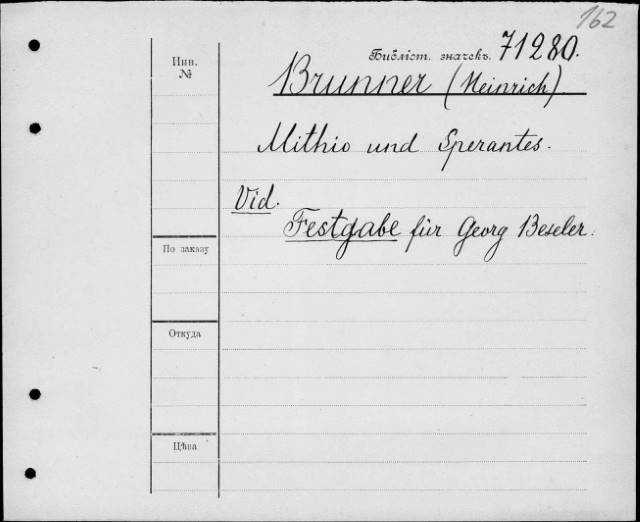 162
Инв.
№
Библіот. значекъ. 71280.
Brunner (Heinrich)
Mithio und Sperantes.
Vid.
Festgabe für Georg Beseler.
По заказу
Откуда
Цѣна